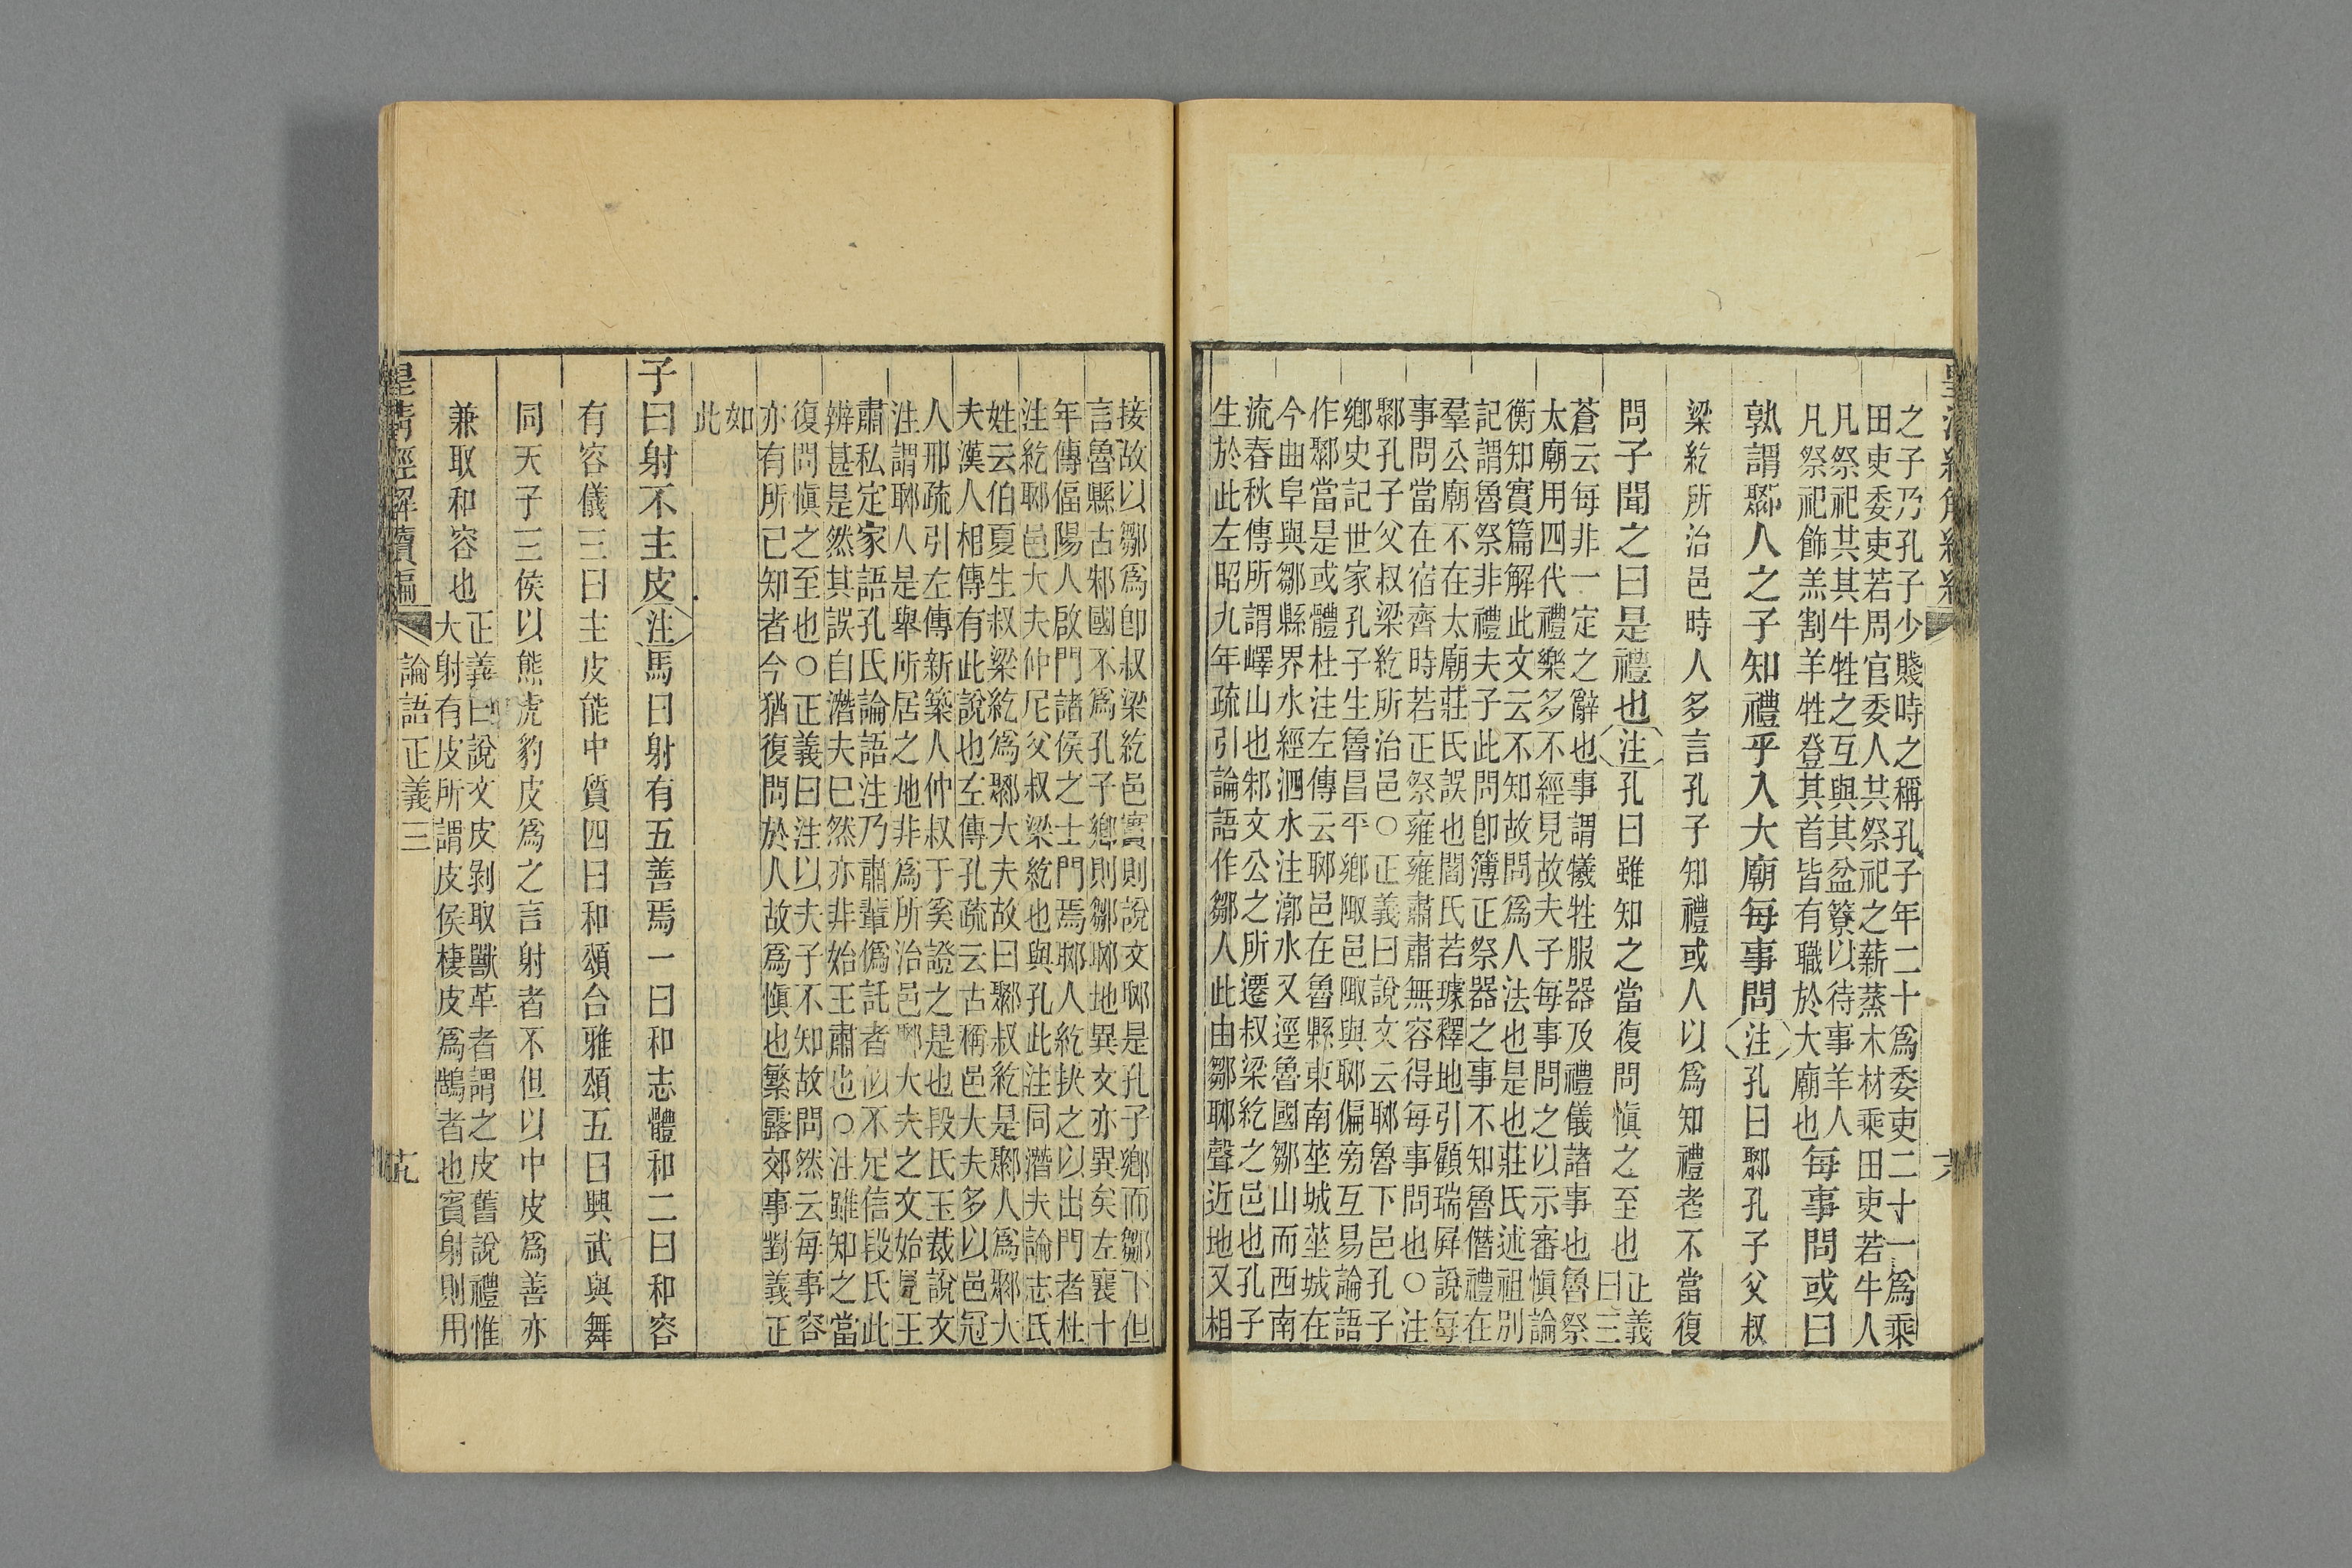 之子乃孔子少賤時之稱孔子年二十爲委吏二十一爲乘
田吏委吏若周官委人共祭祀之薪蒸木材乘田吏若牛人
凡祭祀共其牛牲之互與其盆簝以待事羊人
凡祭祀飾羔割羊牲登其首皆有職於大廟也
每事問或曰
孰謂鄹人之子知禮乎入大廟每事問注孔曰鄹孔子父叔
梁紇所治邑時人多言孔子知禮或人以爲知禮者不當復
問子聞之曰是禮也注孔曰雖知之當復問愼之至也
正義
曰三
蒼云每非一定之辭也事謂犧牲服器及禮儀諸事也魯祭
太廟用四代禮樂多不經見故夫子每事問之以示審愼論
衡知實篇解此文云不知故問爲人法也是也莊氏述祖別
記謂魯祭非禮夫子此問卽簿正祭器之事不知魯僭禮在
羣公廟不在太廟莊氏誤也閻氏若璩釋地引顧瑞屛說每
事問當在宿齊時若正祭雍雍肅肅無容得每事問也○注
鄹孔子父叔梁紇所治邑○正義曰說文云郰魯下邑孔子
鄉史記世家孔子生魯昌平鄉陬邑陬與郰偏旁互易論語
作鄹當是或體杜注左傳云郰邑在魯縣東南莝城莝城在
今曲阜與鄒縣界水經泗水注漷水又逕魯國鄒山而西南
流春秋傳所謂嶧山也邾文公之所遷叔梁紇之邑也孔子
生於此左昭九年疏引論語作鄒人此由鄒郰聲近地又相
接故以鄒爲卽叔梁紇邑實則說文郰是孔子鄉而鄒下但
言魯縣古邾國不爲孔子鄉則鄒郰地異文亦異矣左襄十
年傳偪陽人啟門諸侯之士門焉郰人紇抉之以出門者杜
注紇郰邑大夫仲尼父叔梁紇也與孔此注同潛夫論志氏
姓云伯夏生叔梁紇爲鄹大夫故曰鄹叔紇是鄹人爲鄹大
夫漢人相傳有此說也左傳孔疏云古稱邑大夫多以邑冠
人邢疏引左傳新築人仲叔于奚證之是也段氏玉裁說文
注謂郰人是舉所居之地非爲所治邑鄹大夫之文始見王
肅私定家語孔氏論語注乃肅輩僞託者似不足信段氏此
辨甚是然其誤自潛夫已然亦非始王肅也○注雖知之當
復問愼之至也○正義曰注以夫子不知故問然云每事容
亦有所已知者今猶復問於人故爲愼也繁露郊事對義正
如
此
子曰射不主皮注馬曰射有五善焉一曰和志體和二曰和容
有容儀三曰主皮能中質四曰和頌合雅頌五曰興武與舞
同天子三侯以熊虎豹皮爲之言射者不但以中皮爲善亦
兼取和容也
正義曰說文皮剝取獸革者謂之皮舊說禮惟
大射有皮所謂皮侯棲皮爲鵠者也賓射則用
皇清經解續編
論語正義三